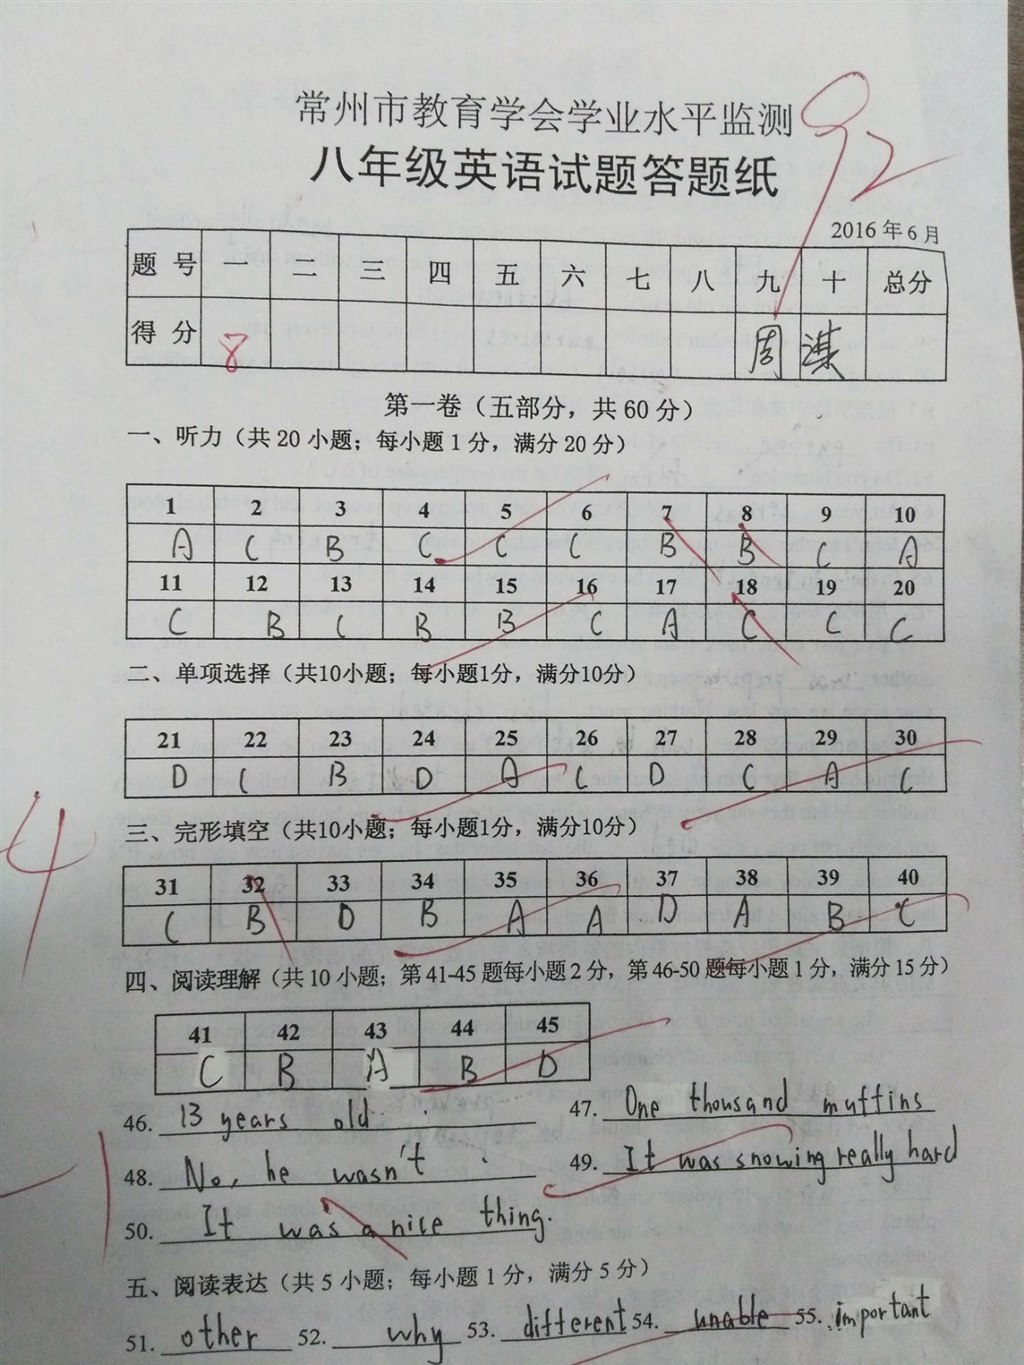 常州市教育学会学业水平监测
92
八年级英语试题答题纸
2016 年 6 月
题 号 一 二 三 四 五 六 七 八 九 十 总分
得 分 8 周 谋
第一卷（五部分，共 60 分）
一、听力（共 20 小题；每小题 1 分，满分 20 分）
1 2 3 4 5 6 7 8 9 10
A C B C C C B B C A
11 12 13 14 15 16 17 18 19 20
C B C B B C A C C C
二、单项选择（共10小题；每小题1分，满分10分）
21 22 23 24 25 26 27 28 29 30
D C B D A C D C A C
-4
三、完形填空（共10小题；每小题1分，满分10分）
31 32 33 34 35 36 37 38 39 40
C B D B A A D A B C
四、阅读理解（共 10 小题；第 41-45 题每小题 2 分，第 46-50 题每小题 1 分，满分 15 分）
41 42 43 44 45
C B A B D
46. 13 years old 47. One thousand muffins
48. No, he wasn't. 49. It was snowing really hard
-1
50. It was a nice thing.
五、阅读表达（共 5 小题；每小题 1 分，满分 5 分）
51. other 52. why 53. different 54. unable 55. important